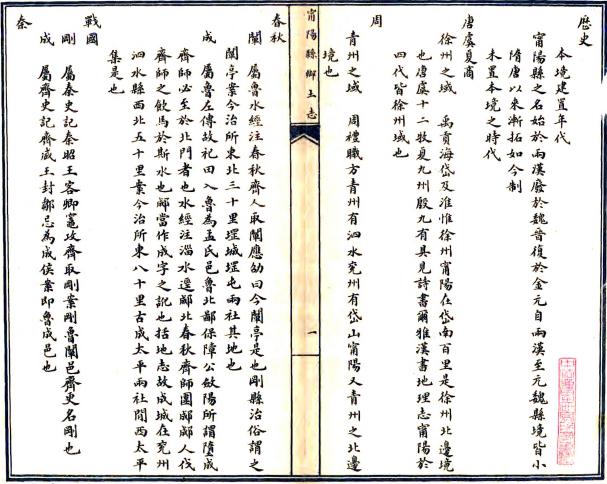 歷史
本境建置年代
甯陽縣之名始於兩漢廢於魏晉復於金元自兩漢至元魏縣境皆小
隋唐以來漸拓如今制
未置本境之時代
唐虞夏商
徐州之域　禹貢海岱及淮惟徐州甯陽在岱南百里是徐州北邊境
也唐虞十二牧夏九州殷九有具見詩書爾雅漢書地理志甯陽於
四代皆徐州域也
周
青州之域　周禮職方青州有泗水兗州有岱山甯陽又青州之北邊
境也
甯陽縣鄉土志
一
春秋
闡　屬魯水經注春秋齊人取闡應劭曰今闡亭是也剛縣治俗謂之
闡亭案今治所東北三十里堽城堽屯兩社其地也
成　屬魯左傳故杞田入魯為孟氏邑魯北鄙保障公斂陽所謂隳成
齊師必至於北門者也水經注淄水逕郕北春秋齊師圍郕郕人伐
齊師之飲馬於斯水也郕當作成字之訛也括地志故成城在兗州
泗水縣西北五十里案今治所東八十里古成太平兩社間西太平
集是也
戰國
剛　屬秦史記秦昭王客卿竈攻齊取剛案剛魯闡邑齊史名剛也
成　屬齊史記齊威王封鄒忌為成侯案即魯成邑也
秦